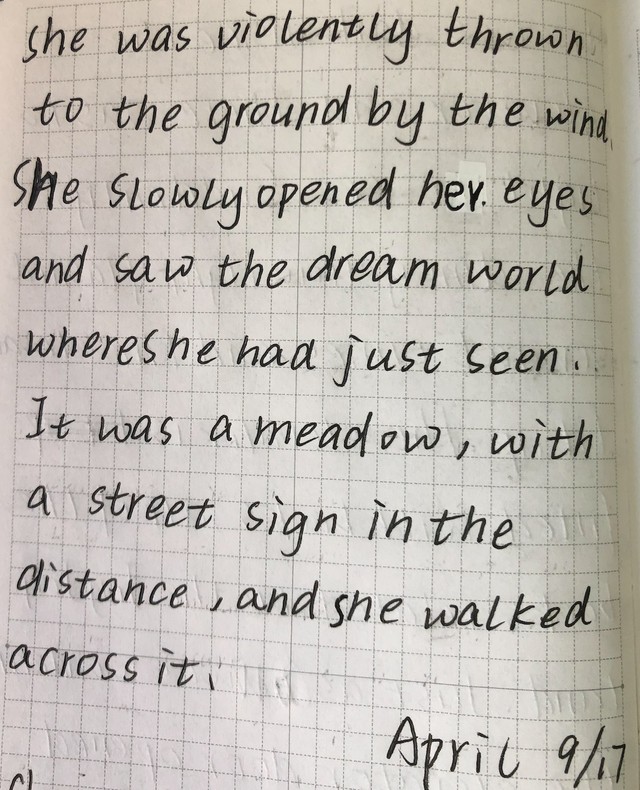 she was violently thrown
to the ground by the wind.
She slowly opened her. eyes
and saw the dream world
where she had just seen.
It was a meadow, with
a street sign in the
distance, and she walked
across it.
April 9/17